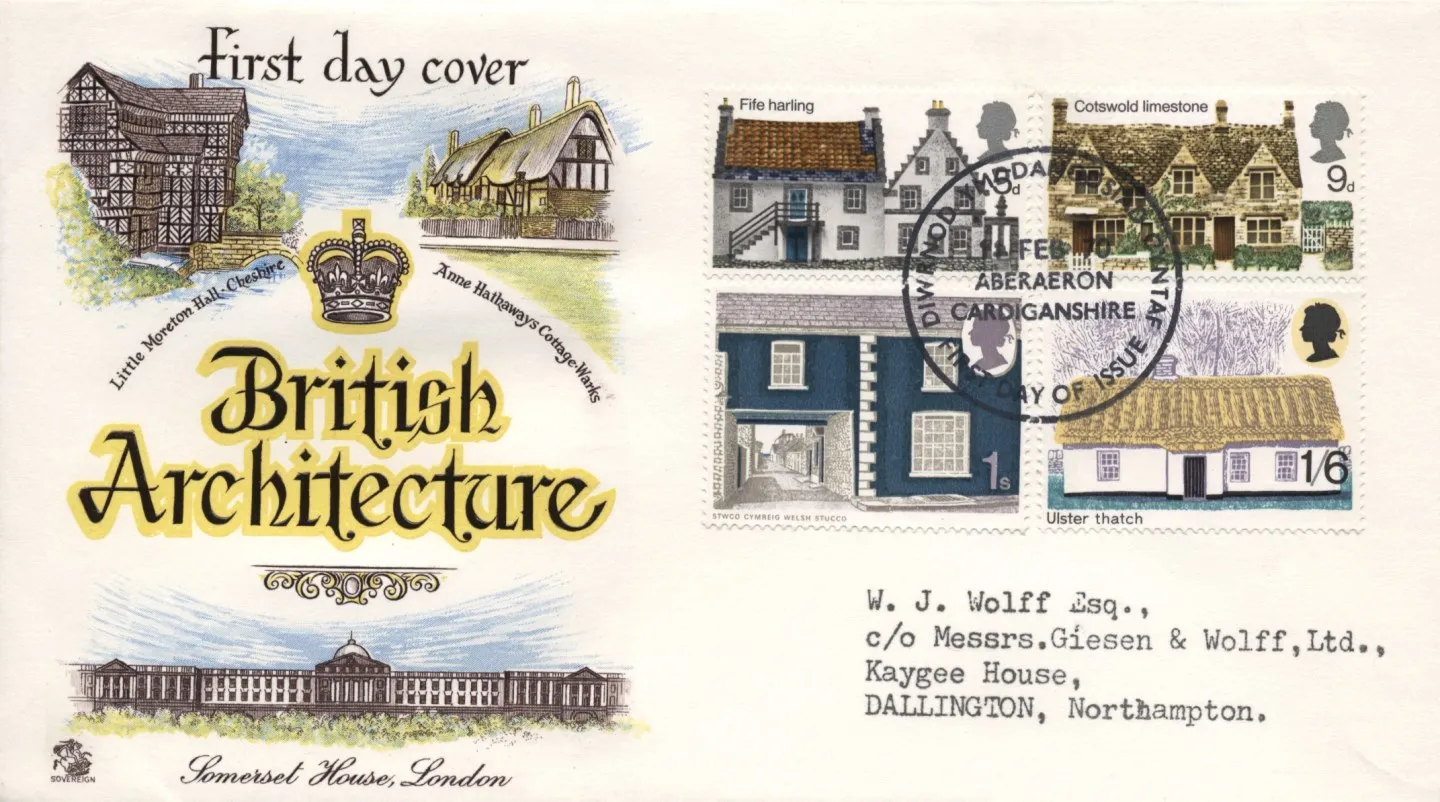 First day cover
Little Moreton Hall-Cheshire
Anne Hathaways Cottage-Warks
British
Architecture
Somerset House, London
SOVEREIGN
Fife harling
5d
Cotswold limestone
9d
1s
STWCO CYMREIG WELSH STUCCO
1/6
Ulster thatch
DIWRNOD CYNTAF
FEB 70
ABERAERON
CARDIGANSHIRE
FIRST DAY OF ISSUE
W. J. Wolff Esq.,
c/o Messrs.Giesen & Wolff,Ltd.,
Kaygee House,
DALLINGTON, Northampton.